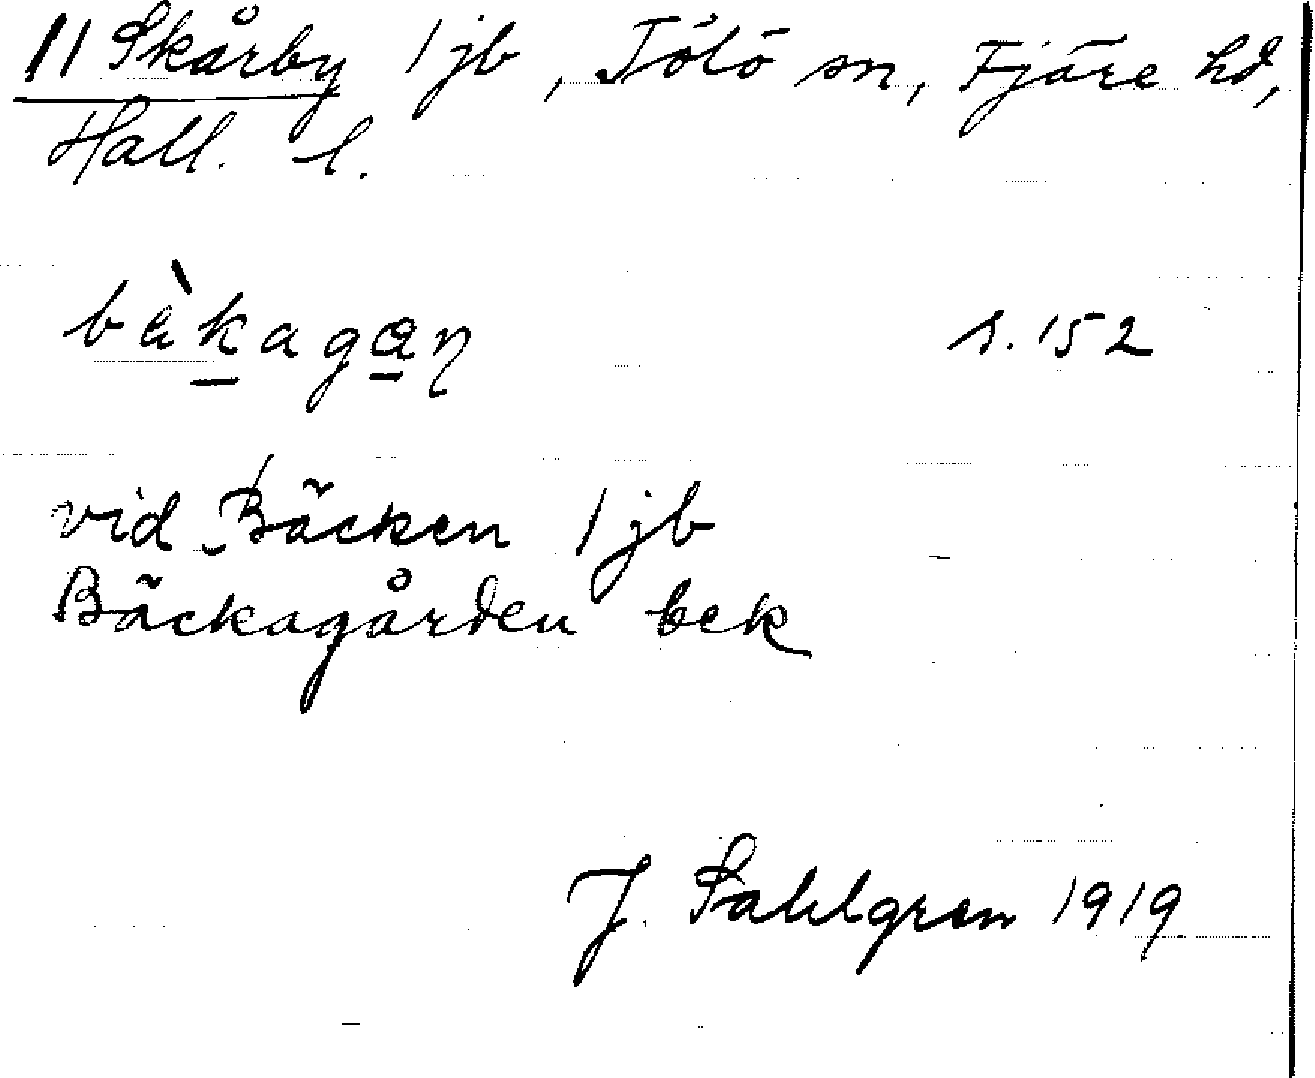 11 Skårby 1 jb, Tölö sn, Fjäre hd,
Hall. l.
bàkagan s. 152
vid Bäcken 1 jb
Bäckagården bek
J. Sahlgren 1919